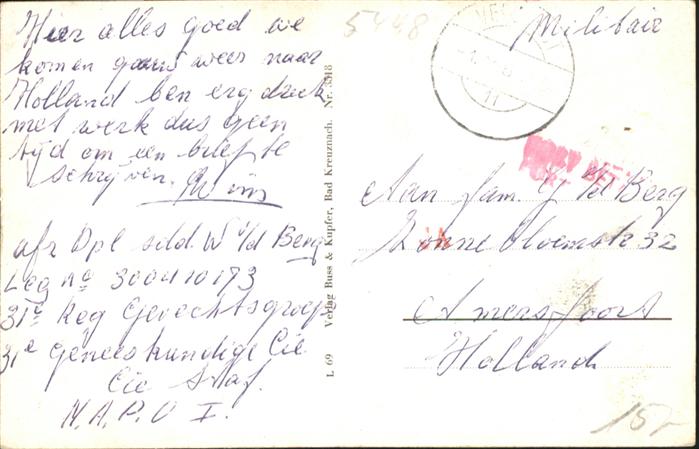 Hier alles goed we
komen gauw weer naar
Holland ben erg druk
met werk dus geen
tijd om een brief te
schrijven.
afz Dpl sold. W v/d Berg
Leg No 300410193
31e Reg Gevechtsgroep
31e Geneeskundige Cie
Cie Staf.
N.A.P.O I.
L 69 Verlag Buss & Kupfer, Bad Kreuznach. Nr. 5318
5448
Militair
Aan fam. J v/d Berg
Zonnebloemstr 32
Amersfoort
Holland
15,-